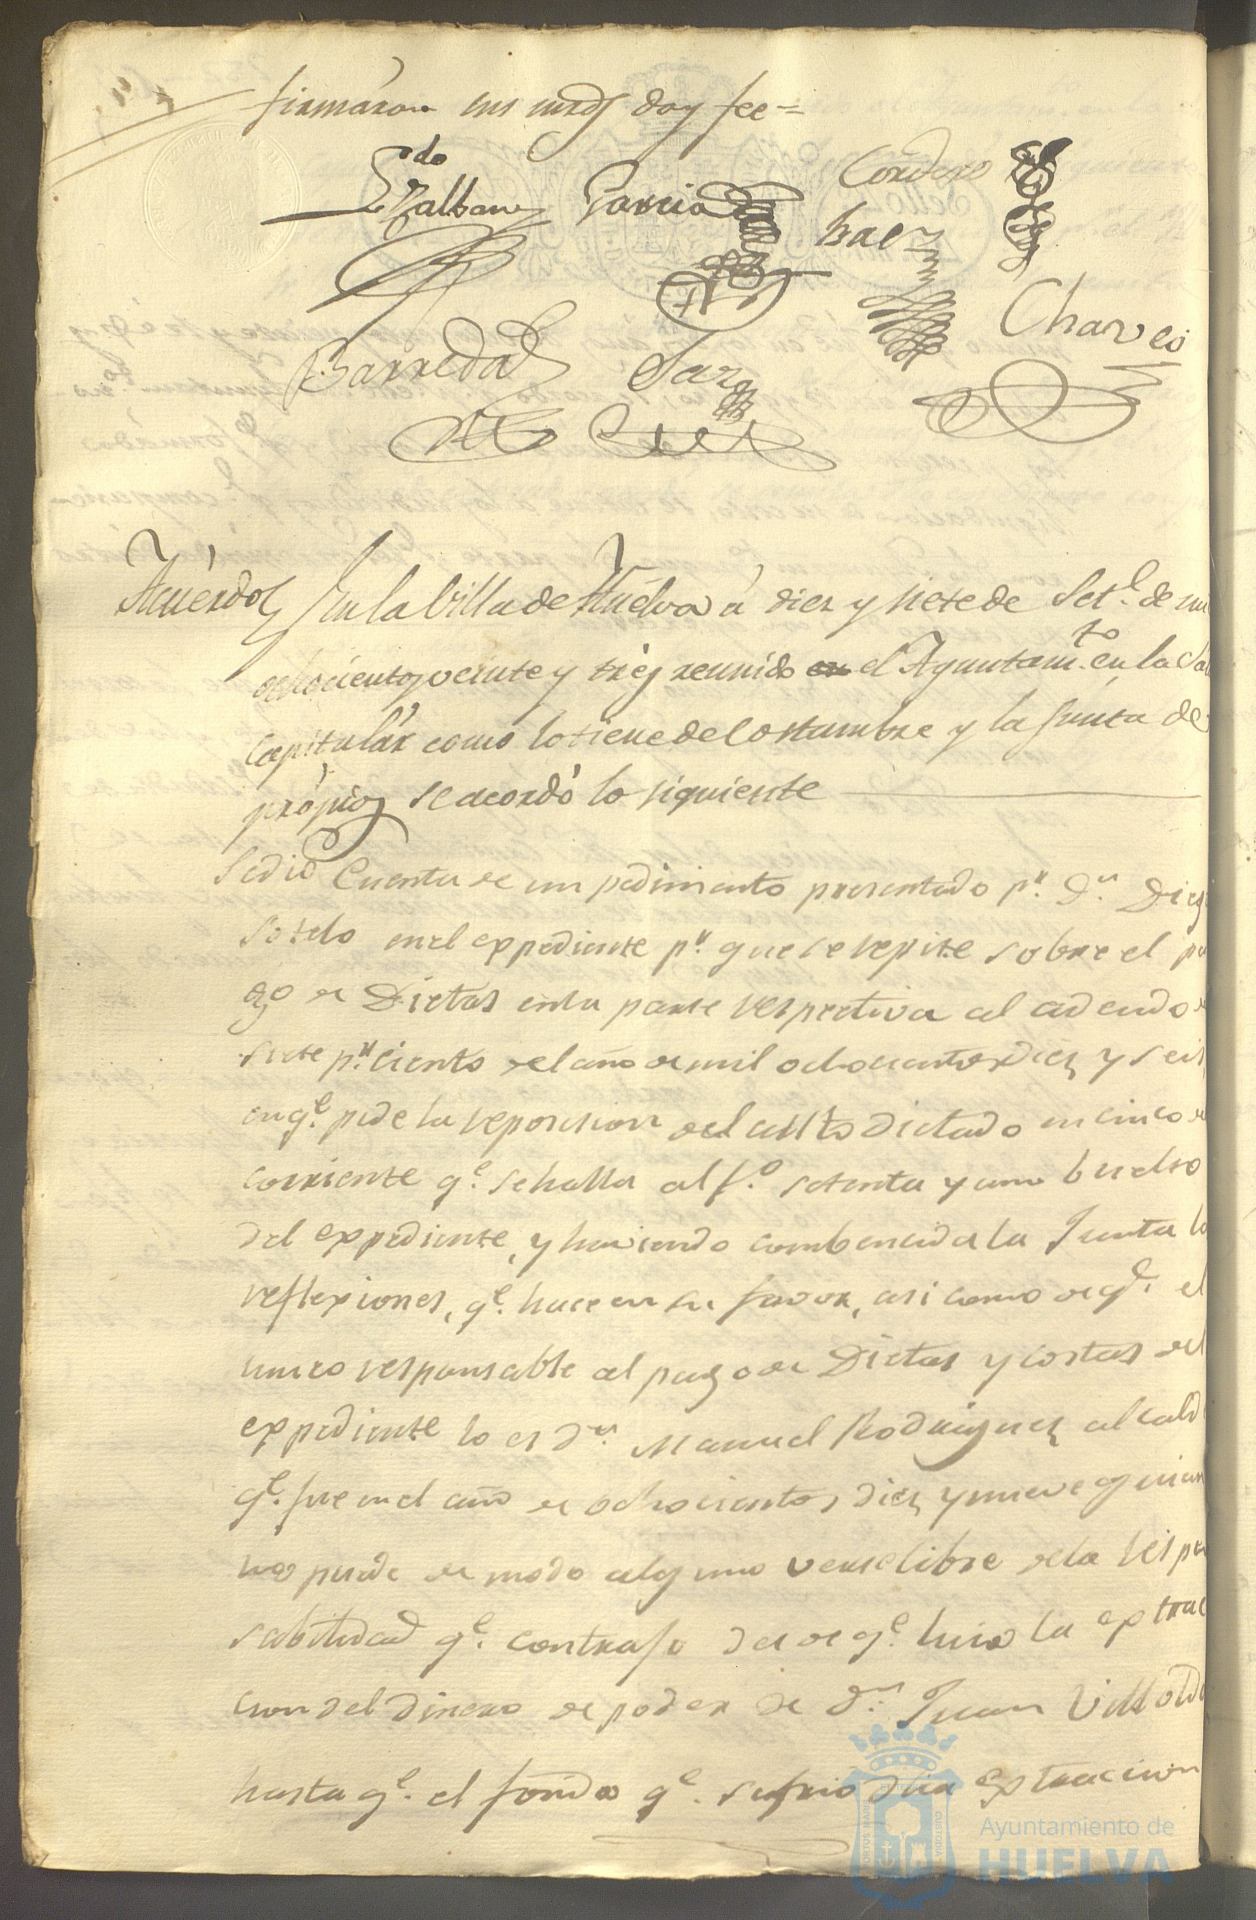 firmáron sus mrds doy fee =
Ldo
Garcia
Cordero
Baez
Chaves
Barreda
Saez
Acuérdo En la Villa de Huelva á diez y siete de Sete. de mil
ochocientos veinte y trés reunido en el Ayuntamto. en la Sala
Capitulár como lo tiene de Costumbre y la Junta de
própios se acordó lo siguiente
Se dió Cuenta de un pedimento presentado pr. Dn. Diego
Sotelo en el expediente pr. que se repite sobre el pa
go de Dietas en la parte respectiva al adeudo de
siete pr. ciento del año de mil ochocientos diez y seis,
en qe. pide la reposicion del auto dictado en cinco del
corriente qe. se halla al fo. setenta y uno buelto
del expediente, y haviendo combencido a la Junta las
reflexiones, qe. hace en su favor, asi como de qe. el
unico responsable al pago de Dietas y costas del
expediente lo es Dn. Manuel Rodriguez alcalde
qe. fue en el año de ochocientos diez y nueve quien
no puede de modo alguno verse libre de la respon
sabilidad qe. contrajo desde qe. hizo la extrac
cion del dinero de poder de Dn. Juan Villoldo
hasta qe. el fondo qe. sufrio dha extraccion
Ayuntamiento de
HUELVA